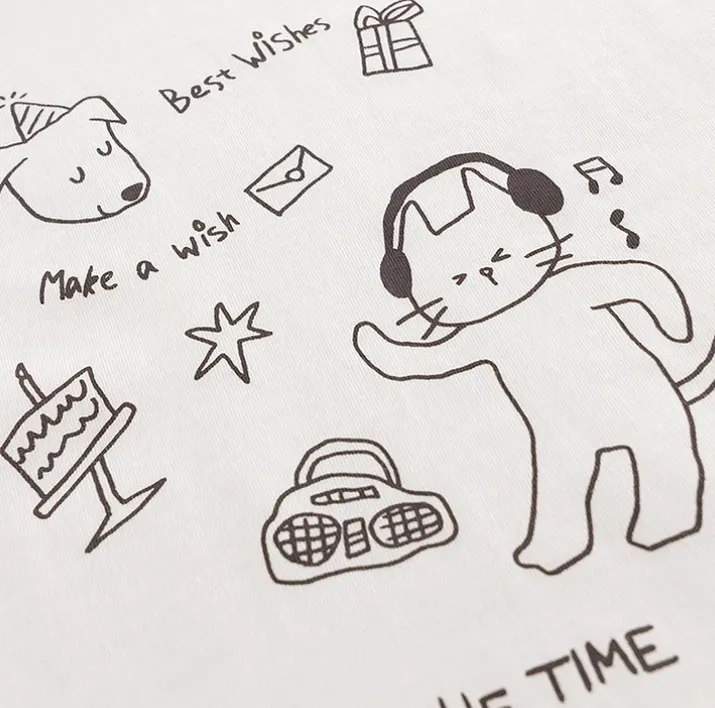 Best Wishes
Make a wish
TIME